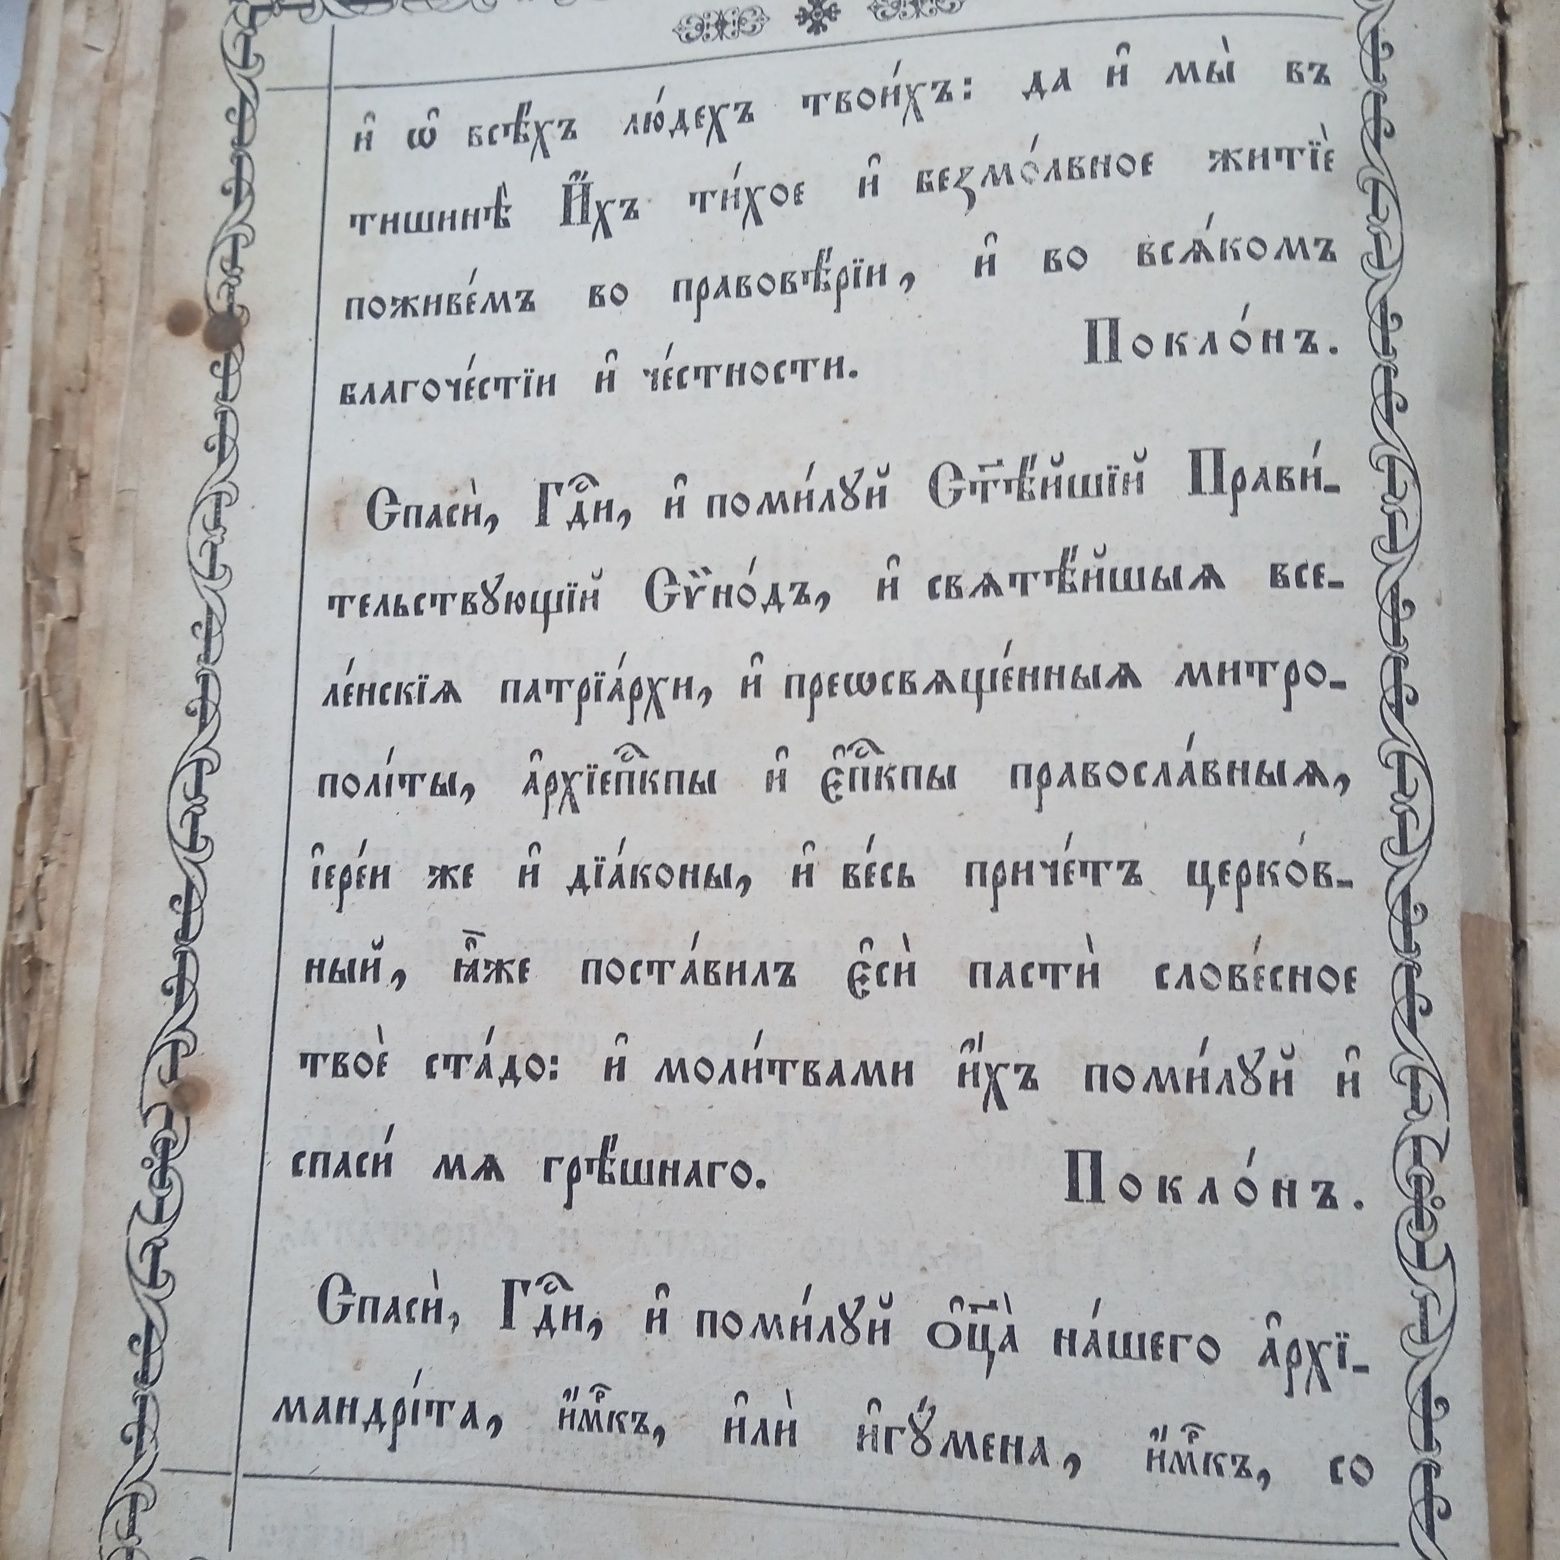 и҆ ѡ҆ всѣ́хъ лю́дехъ твои́хъ: да и҆ мы̀ въ
тишинѣ̀ И҆́хъ ти́хое и҆ безмо́лвное житїѐ
поживе́мъ во правовѣ́рїи, и҆ во вся́комъ
благоче́стїи и҆ че́стности. Покло́нъ.
Спасѝ, Гдⷭ҇и, и҆ поми́лꙋй Ст҃ѣ́йшїй Прави́-
тельствꙋющїй Сѷно́дъ, и҆ свѧтѣ́йшыѧ все-
ле́нскїѧ патрїа́рхи, и҆ преѡсвѧще́нныѧ митро-
полі́ты, а҆рхїепⷭ҇кпы и҆ є҆пⷭ҇кпы правосла́вныѧ,
і҆ере́и же и҆ дїа́коны, и҆ ве́сь приче́тъ церко́в-
ный, ꙗ҆̀же поста́вилъ є҆сѝ пастѝ слове́сное
твоѐ ста́до: и҆ моли́твами и҆́хъ поми́лꙋй и҆
спаси́ мѧ грѣ́шнаго. Покло́нъ.
Спасѝ, Гдⷭ҇и, и҆ поми́лꙋй ѻ҆ц҃а̀ на́шего а҆рхї-
мандрі́та, и҆́мкⷬ҇ъ, и҆лѝ и҆гꙋ́мена, и҆́мкⷬ҇ъ, со